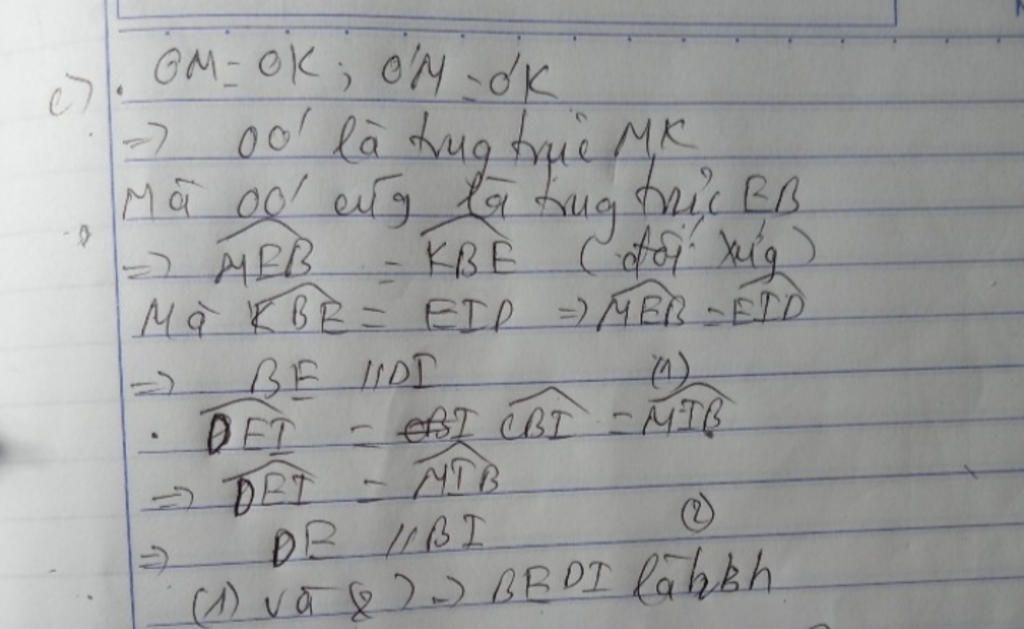 c) . OM = OK ; O'M = O'K
=> OO' là trug trực MK
Mà OO' cũg là trug trực EB
=> MEB = KBE (đối xứg)
Mà KBE = EID => MEB = EID
=> BE // DI (1)
. DEI = CBI = MIB
=> DEI = MIB
=> DE // BI (2)
(1) và (2) => BEDI là hbh